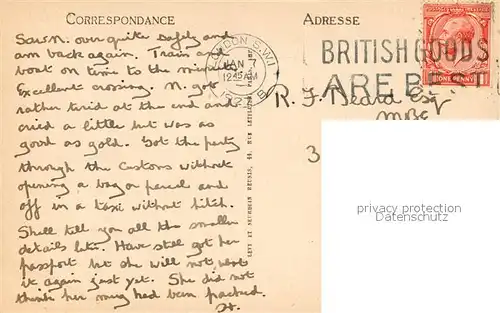 CORRESPONDANCE
Saw N. over quite safely and
am back again. Train and
boat on time to the minute.
Excellent crossing. N. got
rather tired at the end and
cried a little but was as
good as gold. Got the party
through the Customs without
opening a bag or parcel and
off in a taxi without hitch.
Shall tell you all the smaller
details later. Have still got her
passport but she will not want
it again just yet. She did not
think her mug had been packed.
H.
LEVY ET NEURDEIN RÉUNIS, 44, RUE
ADRESSE
LONDON S.W.1
JAN 7
12.45 AM
BRITISH GOODS
ARE BEST
ONE PENNY
R. F. Beard Esq
MBE
3
privacy protection
Datenschutz